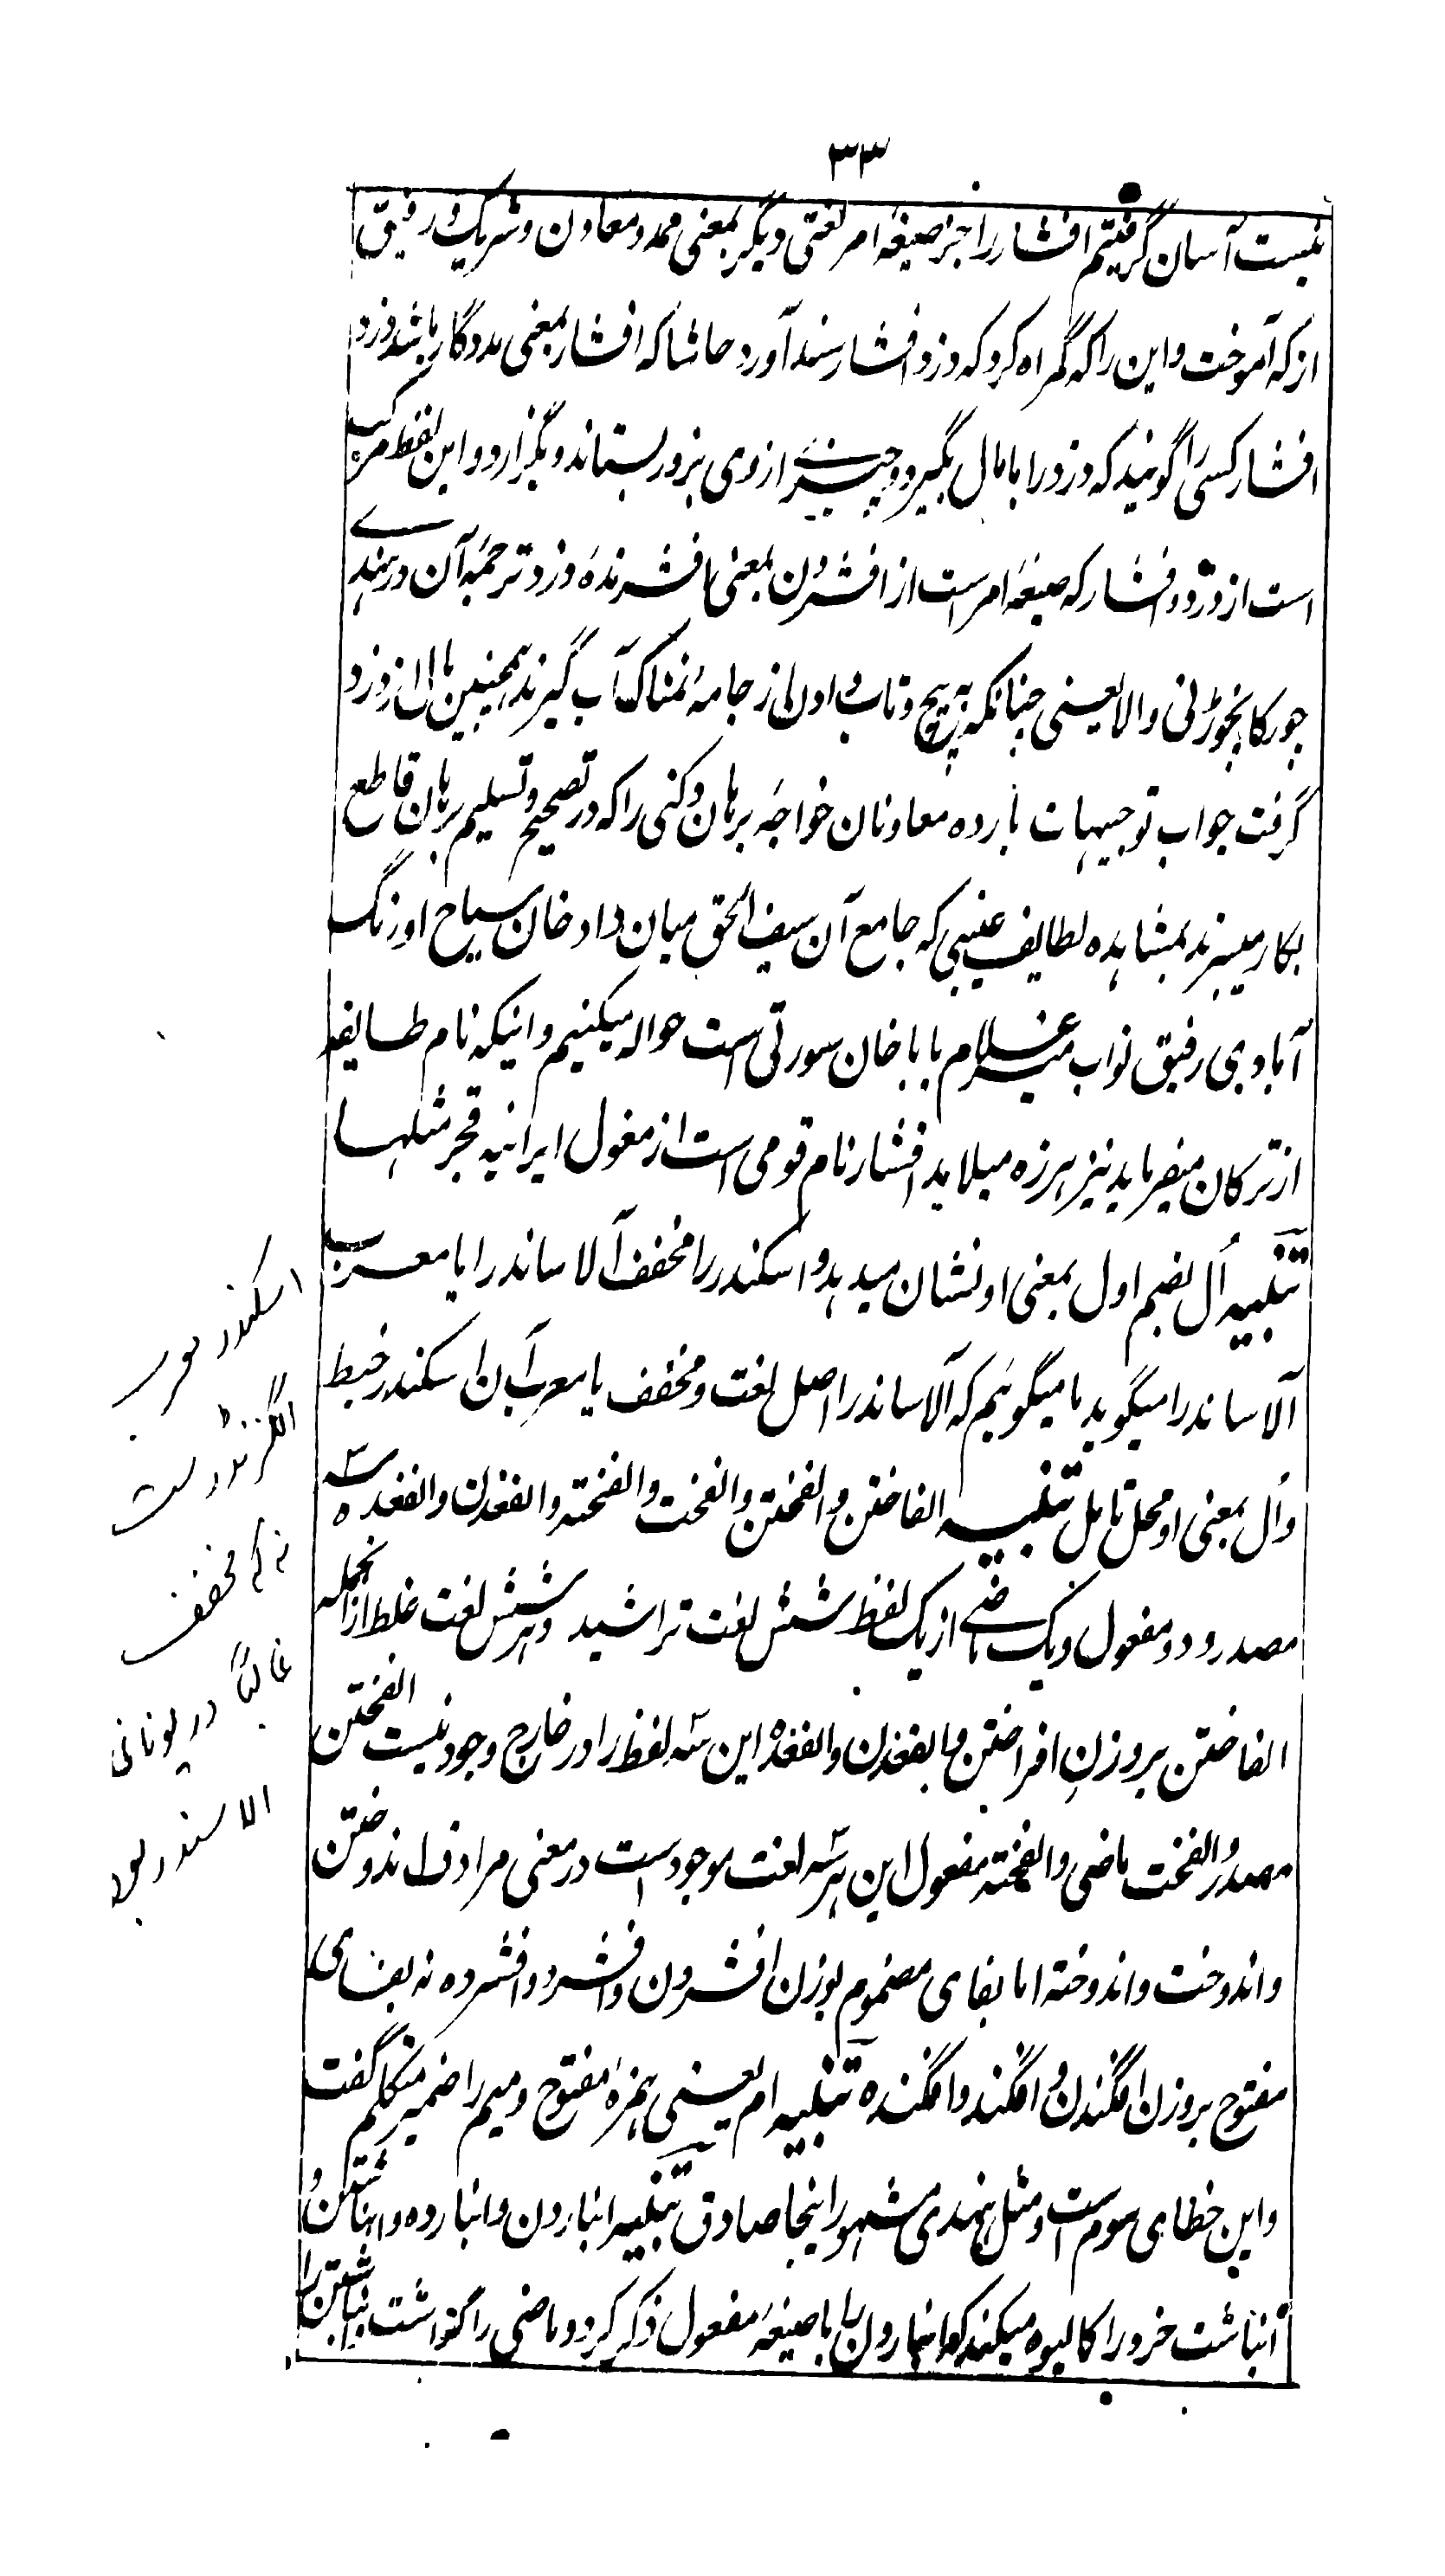 ۳۳
نیست آسان گرفتیم افشار را جز صیغهٔ امر لغتی دیگر بمعنی ممد و معاون و شریک و رفیق
از که آموخت و این را که گمراه کرد که دزد افشار سند آورد حاشا که افشار بمعنی مددگار باشد دزد
افشار کسی را گویند که دزد را با مال بگیرد و چیزے از وی بزور بستاند و بگزارد و این لفظ مرکب
است از دزد و افشار که صیغهٔ امر است از افشردن بمعنی افشرندهٔ دزد ترجمهٔ آن در هندے
چور کا نچوڑنی والا یعنی چنانکه به پیچ و تاب دادن از جامهٔ نمناک آب گیرند همچنین مال از دزد
گرفت جواب توجیهات باردهٔ معاونان خواجه برهان دکنی را که در تصحیح و تسلیم برهان قاطع
بکار میبرند بمشاهده لطایف غیبی که جامع آن سیف الحق میان داد خان سیاح اورنگ
آبادی رفیق نواب میر غلام بابا خان سورتی است حواله میکنیم و اینکه نام طایفه
از ترکان میفرماید نیز هرزه میلاید افشار نام قومی است از مغول ایرانیه قجر مثلها
تنبیه اُل بضم اول بمعنی او نشان میدهد و اسکندر را مخفف آلاساندر یا معرب
آلاساندر میگوید ما میگوییم که آلاساندر اصل لغت و مخفف یا معرب آن اسکندر خبط
و اُل بمعنی او محل تامل تنبیه الفاختن و الفختن و الفخت و الفخته و الفغدن و الفغده سه
مصدر و دو مفعول و یک ماضی از یک لفظ شش لغت تراشید و هر شش لغت غلط ازانجمله
الفاختن بروزن افراختن و الفغدن و الفغده این سه لفظ را در خارج وجود نیست الفختن
مصدر و الفخت ماضی و الفخته مفعول این هر سه لغت موجود است در معنی مرادف اندوختن
و اندوخت و اندوخته اما بفای مضموم بوزن افشردن و افشرد و افشرده نه بفای
مفتوح بروزن افگندن و افگند و افگنده تنبیه ام یعنی همزهٔ مفتوح و میم را ضمیر متکلم گفت
و این خطای سوم است و مثل هندی مشهور اینجا صادق تنبیه انباردن و انبارده و انباشتن و
انباشت خرد را کالیوه میکند که انباردن را با صیغهٔ مفعول ذکر کرد و ماضی را گذاشت انباشتن را
اسکندر معرب
الگزنڈر است
نه که مخفف
غالباً در یونانی
الاسندر بود